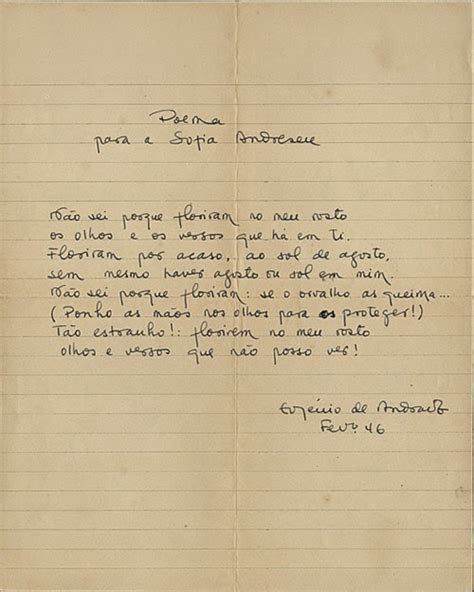 Poema
para a Sofia Andresen
Não sei porque floriram no meu rosto
os olhos e os versos que há em ti.
Floriram por acaso, ao sol de agosto,
sem mesmo haver agosto ou sol em mim.
Não sei porque floriram: se o orvalho as queima...
(Ponho as mãos nos olhos para os proteger!)
Tão estranho!: florirem no meu rosto
olhos e versos que não posso ver!
Eugénio de Andrade
Fevº 46